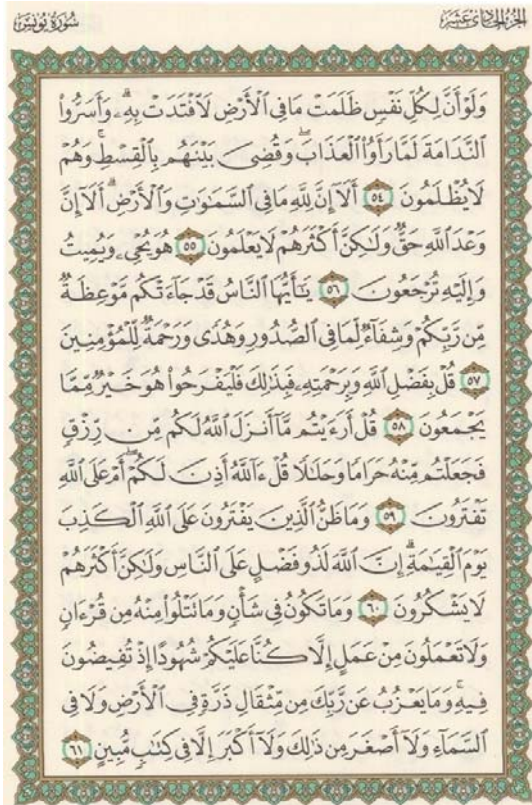 الجزء الحادى عشر
سورة يونس
وَلَوْ أَنَّ لِكُلِّ نَفْسٍ ظَلَمَتْ مَا فِي الْأَرْضِ لَافْتَدَتْ بِهِۦ ۗ وَأَسَرُّوا۟
النَّدَامَةَ لَمَّا رَأَوُا۟ الْعَذَابَ ۖ وَقُضِىَ بَيْنَهُم بِالْقِسْطِ ۚ وَهُمْ
لَا يُظْلَمُونَ ٥٤ أَلَآ إِنَّ لِلَّهِ مَا فِي السَّمَٰوَٰتِ وَالْأَرْضِ ۗ أَلَآ إِنَّ
وَعْدَ اللَّهِ حَقٌّ وَلَٰكِنَّ أَكْثَرَهُمْ لَا يَعْلَمُونَ ٥٥ هُوَ يُحْىِۦ وَيُمِيتُ
وَإِلَيْهِ تُرْجَعُونَ ٥٦ يَٰٓأَيُّهَا النَّاسُ قَدْ جَآءَتْكُم مَّوْعِظَةٌ
مِّن رَّبِّكُمْ وَشِفَآءٌ لِّمَا فِي الصُّدُورِ وَهُدًى وَرَحْمَةٌ لِّلْمُؤْمِنِينَ
٥٧ قُلْ بِفَضْلِ اللَّهِ وَبِرَحْمَتِهِۦ فَبِذَٰلِكَ فَلْيَفْرَحُوا۟ هُوَ خَيْرٌ مِّمَّا
يَجْمَعُونَ ٥٨ قُلْ أَرَءَيْتُم مَّآ أَنزَلَ اللَّهُ لَكُم مِّن رِّزْقٍ
فَجَعَلْتُم مِّنْهُ حَرَامًا وَحَلَٰلًا قُلْ ءَآللَّهُ أَذِنَ لَكُمْ ۖ أَمْ عَلَى اللَّهِ
تَفْتَرُونَ ٥٩ وَمَا ظَنُّ الَّذِينَ يَفْتَرُونَ عَلَى اللَّهِ الْكَذِبَ
يَوْمَ الْقِيَٰمَةِ ۗ إِنَّ اللَّهَ لَذُو فَضْلٍ عَلَى النَّاسِ وَلَٰكِنَّ أَكْثَرَهُمْ
لَا يَشْكُرُونَ ٦٠ وَمَا تَكُونُ فِي شَأْنٍ وَمَا تَتْلُوا۟ مِنْهُ مِن قُرْءَانٍ
وَلَا تَعْمَلُونَ مِنْ عَمَلٍ إِلَّا كُنَّا عَلَيْكُمْ شُهُودًا إِذْ تُفِيضُونَ
فِيهِ ۚ وَمَا يَعْزُبُ عَن رَّبِّكَ مِن مِّثْقَالِ ذَرَّةٍ فِي الْأَرْضِ وَلَا فِي
السَّمَآءِ وَلَآ أَصْغَرَ مِن ذَٰلِكَ وَلَآ أَكْبَرَ إِلَّا فِي كِتَٰبٍ مُّبِينٍ ٦١